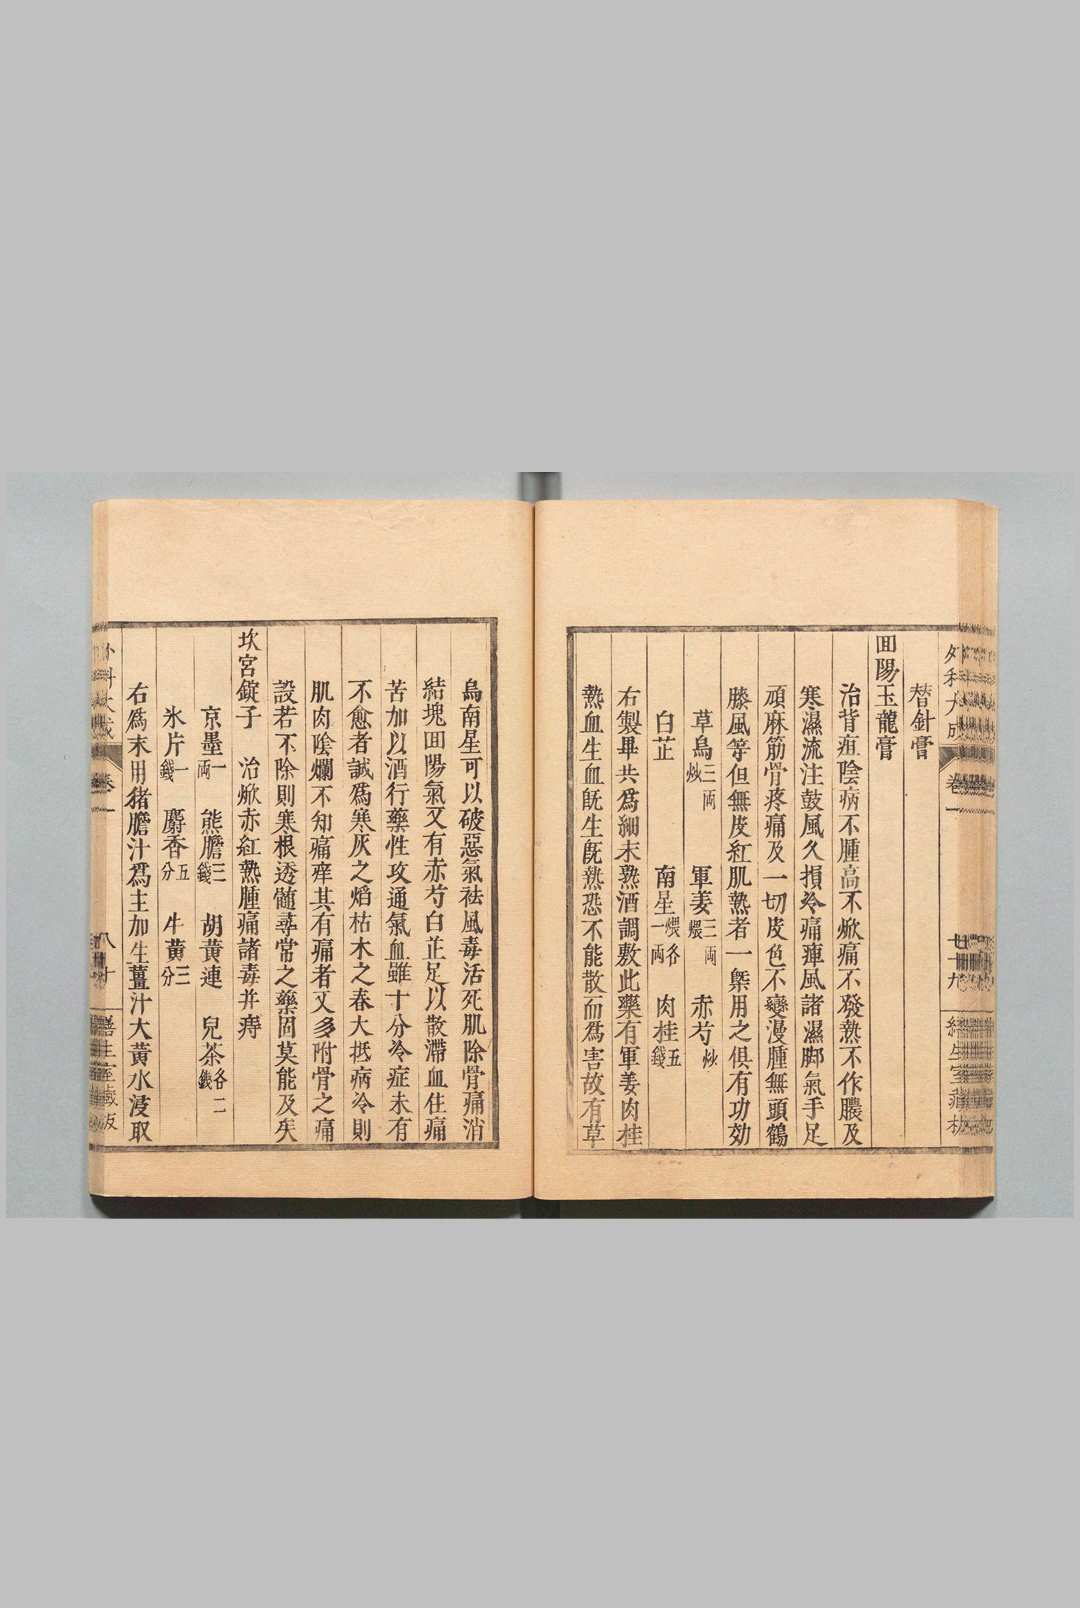 外科大成 卷一 七十九
替針膏
囬陽玉龍膏
治背疽陰病不腫高不焮痛不發熱不作膿及
寒濕流注鼓風久損冷痛痺風諸濕脚氣手足
頑麻筋骨疼痛及一切皮色不變漫腫無頭鶴
膝風等但無皮紅肌熱者一槩用之俱有功効
草烏三両炒 軍姜三両煨 赤芍炒
白芷 南星煨各一両 肉桂五錢
右製畢共爲細末熱酒調敷此藥有軍姜肉桂
熱血生血旣生旣熱恐不能散而爲害故有草
烏南星可以破惡氣袪風毒活死肌除骨痛消
結塊囬陽氣又有赤芍白芷足以散滯血住痛
苦加以酒行藥性攻通氣血雖十分冷症未有
不愈者誠爲寒灰之焰枯木之春大抵病冷則
肌肉陰爛不知痛痒其有痛者又多附骨之痛
設若不除則寒根透髓尋常之藥固莫能及矣
坎宮錠子 治焮赤紅熱腫痛諸毒并痔
京墨一両 熊膽三錢 胡黃連 兒茶各二錢
氷片一錢 麝香五分 牛黃三分
右爲末用猪膽汁爲主加生薑汁大黃水浸取
外科大成 卷一 八十